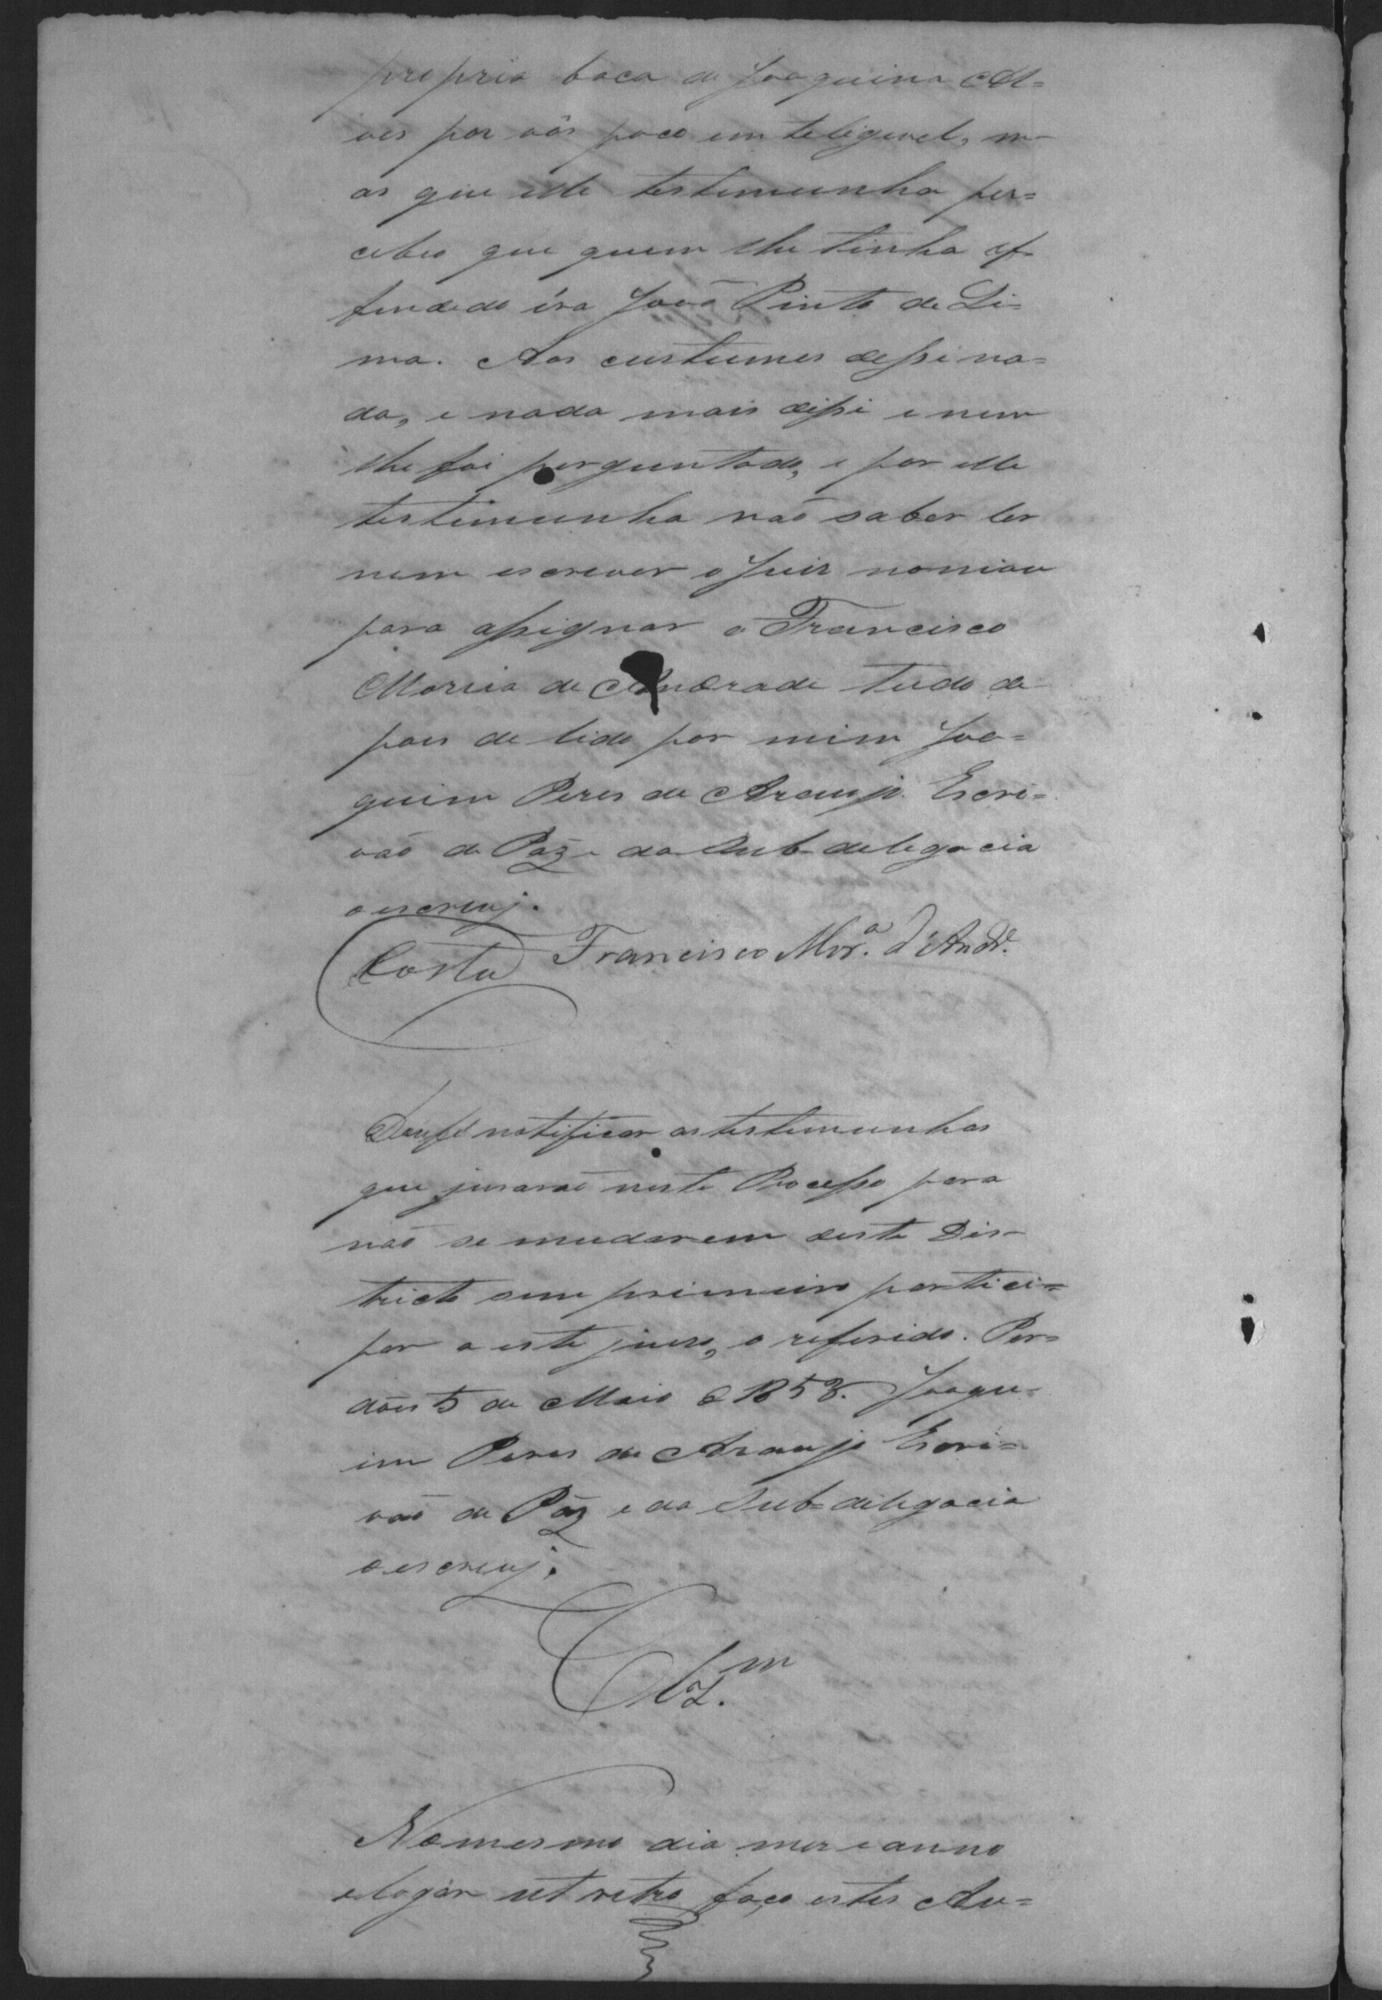 propria boca de Joaquina Al=
ves por vós poco emteligivel, m-
as que elle testimunha per=
cebeo que quem lhe tinha of-
fendedo éra João Pinto de Li=
ma. Aos custumes dissi na=
da, e nada mais dissi e nem
lhe foi perguntado, e por elle
testimunha não saber ler
nem escrever o Juis nomiou
para assignar a Francisco
Moreia de Andrade tudo de-
pois de lido por mim Joa=
quim Peres de Araujo Escri=
vaõ de Páz e da Sub-delegacia
o escrevj.
Costa Francisco Mor.ª d'Andr.e
Doufé notificar as testimunhas
que juraraõ neste Processo para
naõ se mudarem deste Dis-
tricto sem primeiro partici=
par a este juizo, o referido. Per=
does 5 de Maio de 1858. Joaqu-
im Peres de Araujo Escri=
vaõ de Páz e da Sub=delegacia
o escrevj.
Clz.m
No mesmo dia mes e anno
e logar ut retro faço estes Au=